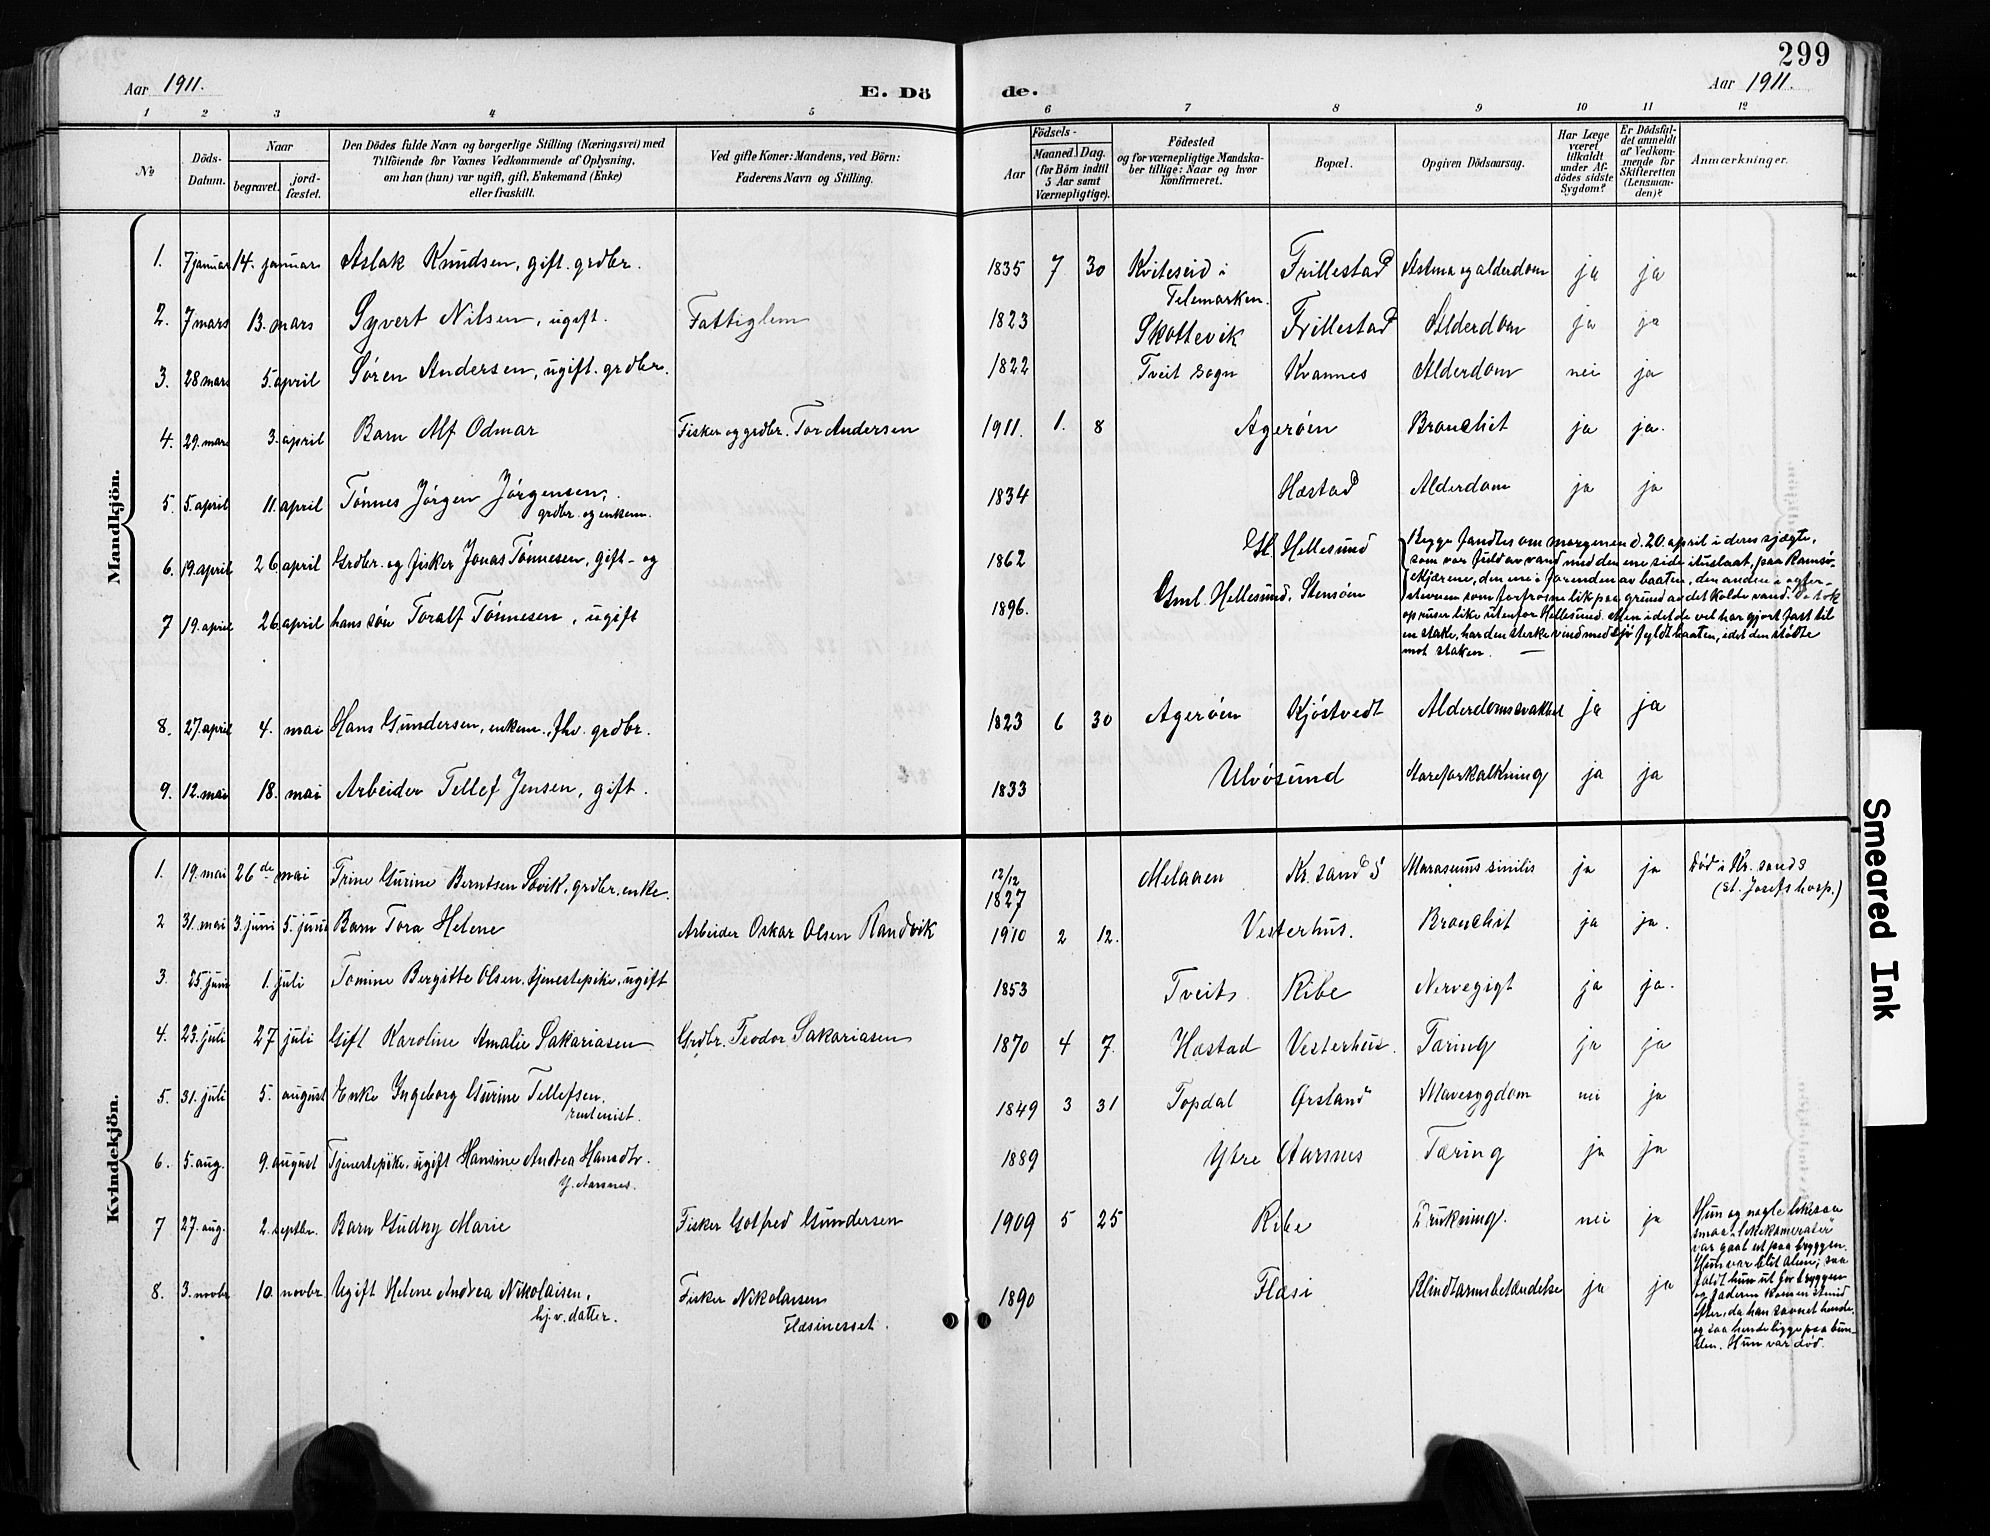 299
Aar 1911.
E. Dö
de.
Aar 1911.
1 2 3 4 5 6 7 8 9 10 11 12
№
Döds-Datum.
Naar
begravet.
jord-fæstet.
Den Dödes fulde Navn og borgerlige Stilling (Næringsvei) med
Tilföiende for Voxnes Vedkommende af Oplysning,
om han (hun) var ugift, gift, Enkemand (Enke)
eller fraskilt.
Ved gifte Koner: Mandens, ved Börn:
Faderens Navn og Stilling.
Födsels-
Aar
Maaned. Dag.
(for Börn indtil
5 Aar samt
Værnepligtige).
Födested
og for værnepligtige Mandska-
ber tillige: Naar og hvor
konfirmeret.
Bopæl.
Opgiven Dödsaarsag.
Har Læge
været
tilkaldt
under Af-
dödes sidste
Sygdom?
Er Dödsfal-
det anmeldt
af Vedkom-
mende for
Skifteretten
(Lensman-
den)?
Anmærkninger.
Mandkjön.
1. 7 januar 14. januar Aslak Knudsen, gift. grdbr. 1835 7 30 Kviteseid i Telemarken. Frillestad Astma og alderdom ja ja
2. 7 mars 13. mars Syvert Nilsen, ugift. Fattiglem 1823 Skottevik Frillestad Alderdom ja ja
3. 28 mars 5. april Søren Andersen, ugift. grdbr. 1822 Tveit sogn Kvannes Alderdom nei ja
4. 29. mars 3. april Barn Alf Odmar Fisker og grdbr. Tor Andersen 1911. 1. 8 Agerøen Bronchit ja ja.
5. 5. april 11. april Tønnes Jørgen Jørgensen, grdbr. og enkem. 1834 Hæstad Alderdom ja ja
6. 19. april 26. april Grdbr. og fisker Jonas Tønnesen, gift - og 1862 Gl. Hellesund
7 19. april 26. april hans søn Toralf Tønnesen, ugift 1896. Gml. Hellesund, Stensøen
Begge fandtes om morgenen d. 20. april i deres sjægte,
som var fuld av vand med den ene side ituslaat, paa Ramsø-
skjærene, den ene i forenden av baaten, den anden i agter-
stevnen som forfrosne lik paa grund av det kolde vand. De tok
op ruser like utenfor Hellesund. Men idet de vel har gjort fast til
en stake, har den sterke vind med sjø fyldt baaten, idet den stødte
mot staken. —
8. 27. april 4. mai Hans Gundersen, enkem., fhv. grdbr. 1823 6 30 Agerøen Kjøstvedt Alderdomssvakhet ja ja
9. 12. mai 18. mai Arbeider Tellef Jensen, gift. 1833 Ulvøsund Aareforkalkning ja ja
Kvindekjön.
1. 19. mai 26de mai Trine Gurine Berntsen Søvik, grdbr. enke. 12/12 1827 Melaaen Kr.sand S Marasmus senilis ja ja Død i Kr.sands (St. Josefs hosp.)
2 31. mai 3. juni 5. juni Barn Tora Helene Arbeider Oskar Olsen Randvik 1910 2 12. Vesterhus. Bronchit ja ja.
3. 25. juni 1. juli Tomine Bergitte Olsen, tjenestepike, ugift 1853 Tveit. Ribe Nervegigt ja ja.
4. 23. juli 27 juli Gift Karoline Amalie Sakariasen Grdbr. Teodor Sakariasen 1870 4 7. Hæstad Vesterhus. Tæring ja ja
5. 31. juli 5. august Enke Ingeborg Gurine Tellefsen, rentenist. 1849 3 31 Topdal Ørsland Mavesygdom nei ja
6. 5. aug. 9. august Tjenestepike, ugift Hansine Andrea Hansdtr. Y. Aarsnes. 1889 Ytre Aarsnes Tæring ja ja
7 27. aug. 2. septbr. Barn Gudny Marie Fisker Gotfred Gundersen 1909 5 25 Ribe Drukning. nei ja
Hun og nogle likesaa
smaa "lekekamerater"
var gaat ut paa bryggen.
Hun var blit alene, saa
faldt hun ut for bryggen
og faderen kom en stund
efter, da han savnet hende,
og saa hende ligge paa bun-
den. Hun var død.
8. 3. novbr. 10. novbr. Ugift Helene Andrea Nikolaisen, hj.v. datter. Fisker Nikolaisen Flæsinesset. 1890 Flæsi Blindtarmsbetændelse ja ja
Smeared Ink